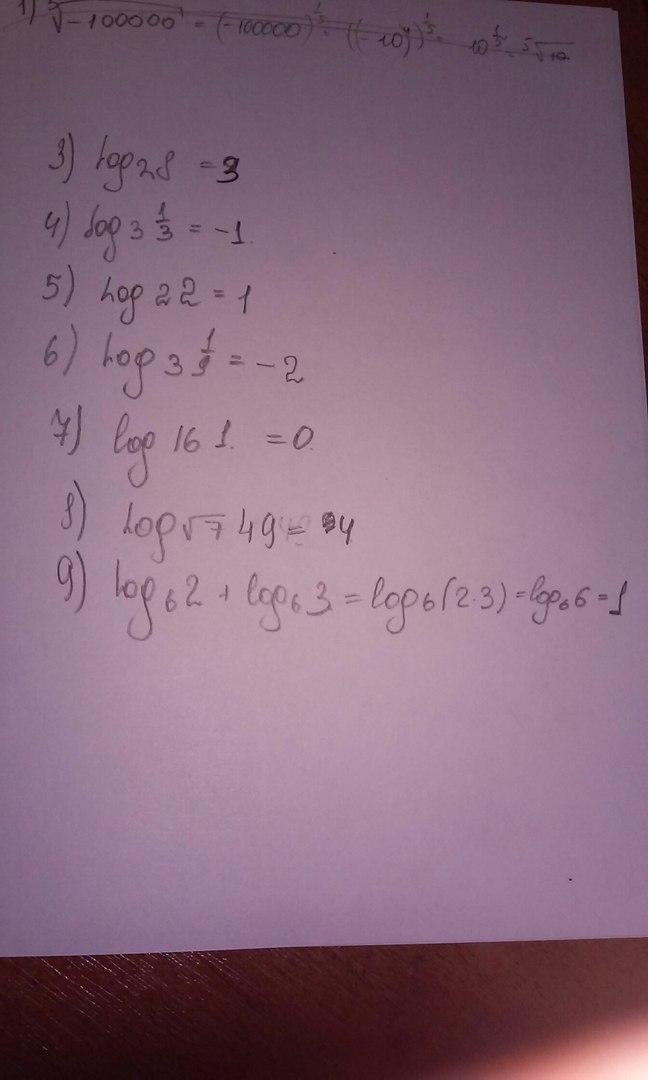 1) ⁵√-100000 = (-100000)^1/5 = ((-10)⁴)^1/5 = 10^1/5 = ⁵√10
3) log₂8 = 3
4) log₃ 1/3 = -1
5) log₂2 = 1
6) log₃ 1/9 = -2
7) log 16 1 = 0
8) log√7 49 = 4
9) log₆2 + log₆3 = log₆(2·3) = log₆6 = 1